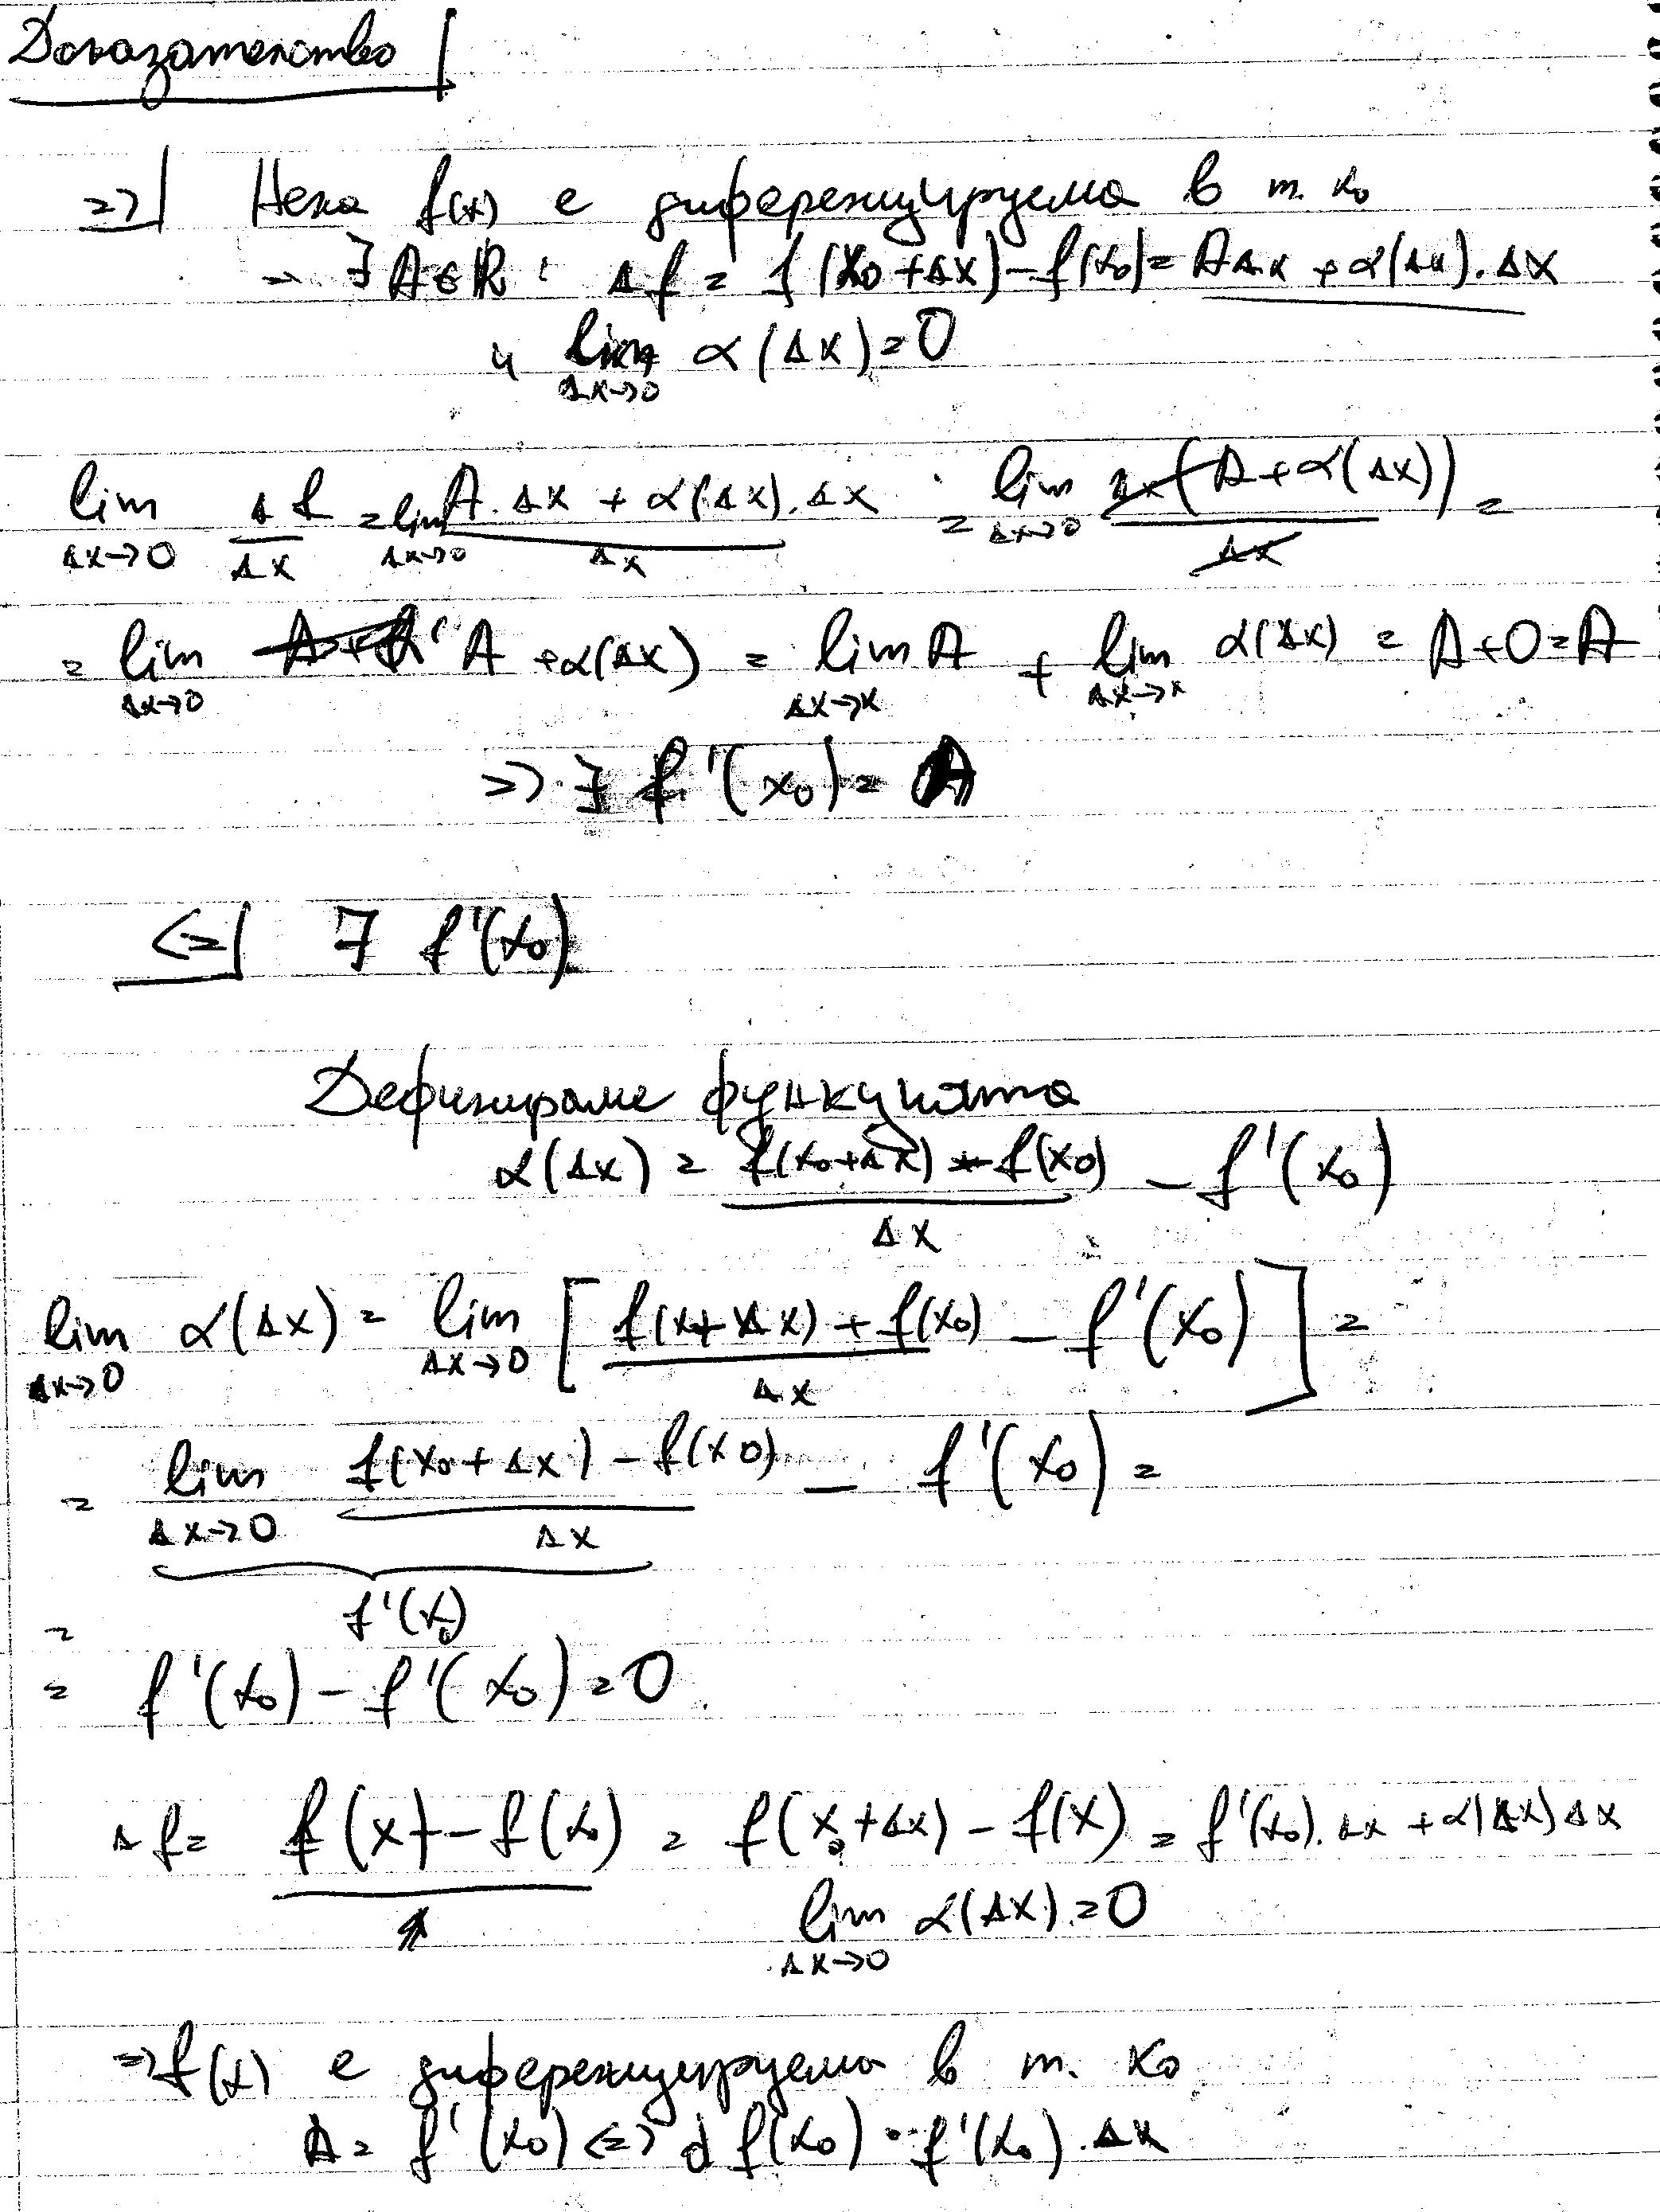 Доказателство
=>| Нека f(x) е диференцируема в т. x₀
→ ∃ A∈ℝ : Δf = f(x₀+Δx)-f(x₀)= AΔx + α(Δx).Δx
и lim_{Δx→0} α(Δx)=0
lim_{Δx→0} Δf/Δx = lim_{Δx→0} (A.Δx + α(Δx).Δx)/Δx = lim_{Δx→0} Δx(A+α(Δx))/Δx =
= lim_{Δx→0} A +α(Δx) = lim_{Δx→x} A + lim_{Δx→x} α(Δx) = A+0=A
=> ∃ f'(x₀)= A
<=| ∃ f'(x₀)
Дефинираме функцията
α(Δx) = (f(x₀+Δx) - f(x₀))/Δx - f'(x₀)
lim_{Δx→0} α(Δx) = lim_{Δx→0} [ (f(x+Δx) + f(x₀))/Δx - f'(x₀) ] =
= lim_{Δx→0} (f(x₀+Δx) - f(x₀))/Δx - f'(x₀) =
f'(x₀)
=
= f'(x₀) - f'(x₀) = 0
Δf = f(x) - f(x₀) = f(x₀+Δx) - f(x) = f'(x₀).Δx + α(Δx)Δx
lim_{Δx→0} α(Δx) = 0
=> f(x) е диференцируема в т. x₀
A = f'(x₀) <=> d f(x₀) = f'(x₀).Δx